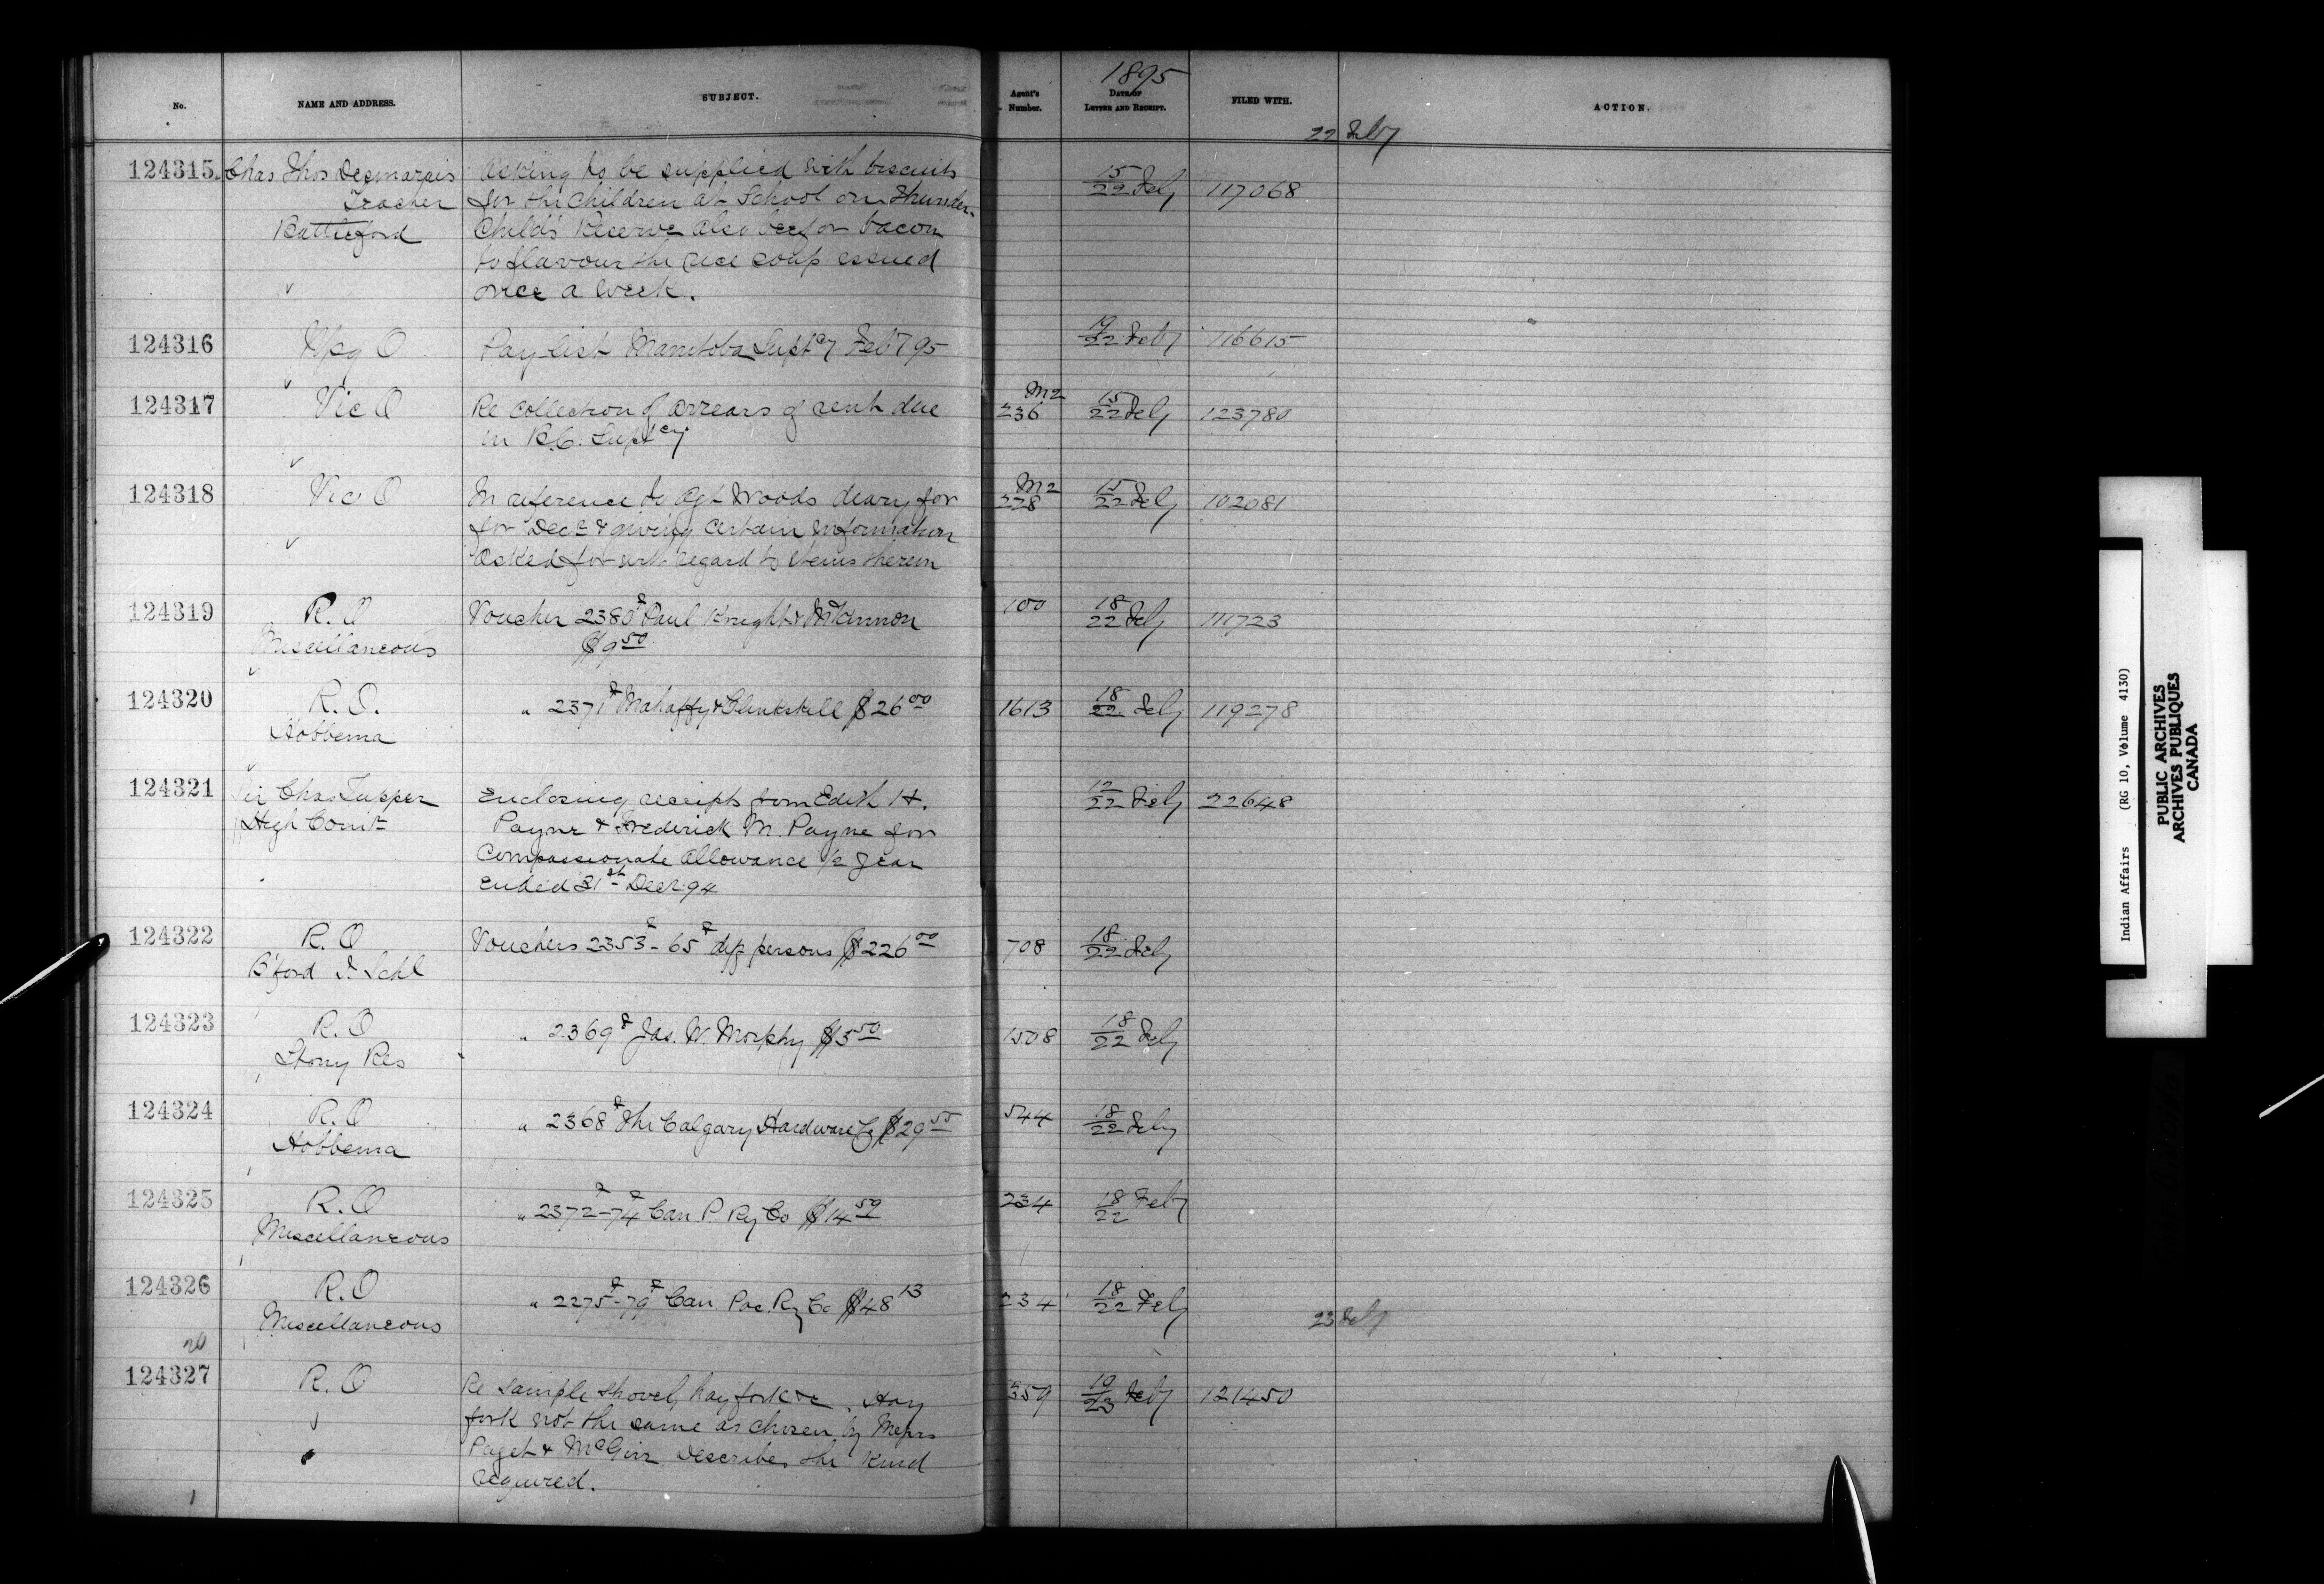 No. NAME AND ADDRESS. SUBJECT. Agent's Number. 1895 DATE OF LETTER AND RECEIPT. FILED WITH. ACTION.
22 Feby
124315 Chas Thos Desmarais Asking to be supplied with biscuits 15/22 Feby 117068
Teacher for the children at School on Thunder
Battleford Child's Reserve also beef or bacon
to flavour the rice soup issued
once a week.
124316 Wpg O Pay-list Manitoba Supt cy Feby 95 19/22 Feby 116615
124317 Vic O Re collection of arrears of rent due M2 236 15/22 Feby 123780
in B.C. Supt cy
124318 Vic O In reference to Agt Woods diary for M2 228 15/22 Feby 102081
for Decr & giving certain information
asked for with regard to items therein
124319 R.O Voucher 2380 Paul Knight & McKinnon 100 18/22 Feby 111723
Miscellaneous $9 50
124320 R.O. " 2371 Mahaffy & Clinkskill $26 00 1613 18/22 Feby 119278
Hobbema
124321 Sir Chas Tupper Enclosing receipts from Edith H. 12/22 Feby 22648
High Comr Payne & Frederick M. Payne for
Compassionate allowance ½ year
ended 31st Decr 94
124322 R.O Vouchers 2353 - 65 dif persons $226 00 708 18/22 Feby
B'ford I. Schl
124323 R.O " 2369 Jas. W. Morphy $5 50 1508 18/22 Feby
Stony Res
124324 R.O " 2368 The Calgary Hardware Co $29 55 544 18/22 Feby
Hobbema
124325 R.O " 2372-74 Can. P. Ry Co $14 59 234 18/22 Feby
Miscellaneous
124326 R.O " 2275-79 Can. Pac. Ry Co $48 13 234 18/22 Feby
Miscellaneous
23 Feby
124327 R.O Re sample shovel, hay fork &c. Hay 359 19/23 Feby 121450
fork not the same as chosen by Messrs
Paget & McGirr describes the kind
required.
Indian Affairs (RG 10, Volume 4130)
PUBLIC ARCHIVES
ARCHIVES PUBLIQUES
CANADA